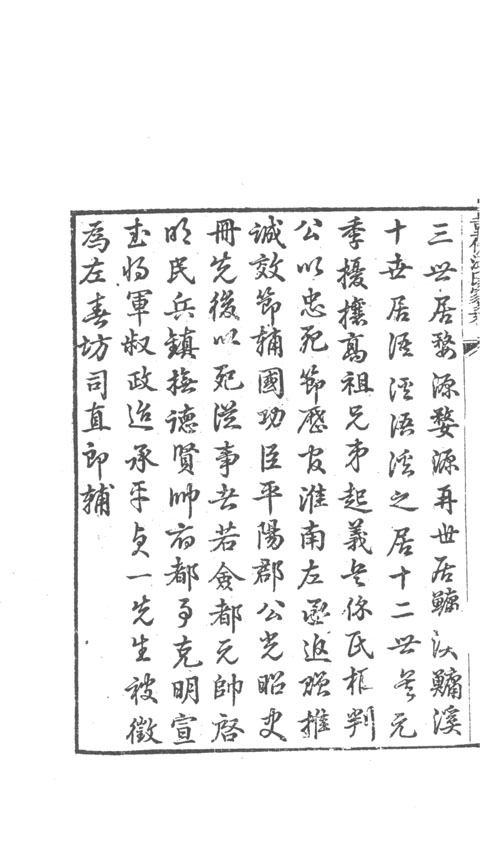 三世居婺源婺源再世居鱅汊鱅溪
十世居浯溪浯溪之居十二世矣元
季擾攘高祖兄弟起義兵保民樞判
公以忠死節歷官淮南左丞追贈推
誠效節輔國功臣平陽郡公光昭史
冊先後以死從事者若僉都元帥啓
明民兵鎮撫德賢帥府都事克明宣
武將軍叔政迨承平貞一先生被徵
為左春坊司直郎輔